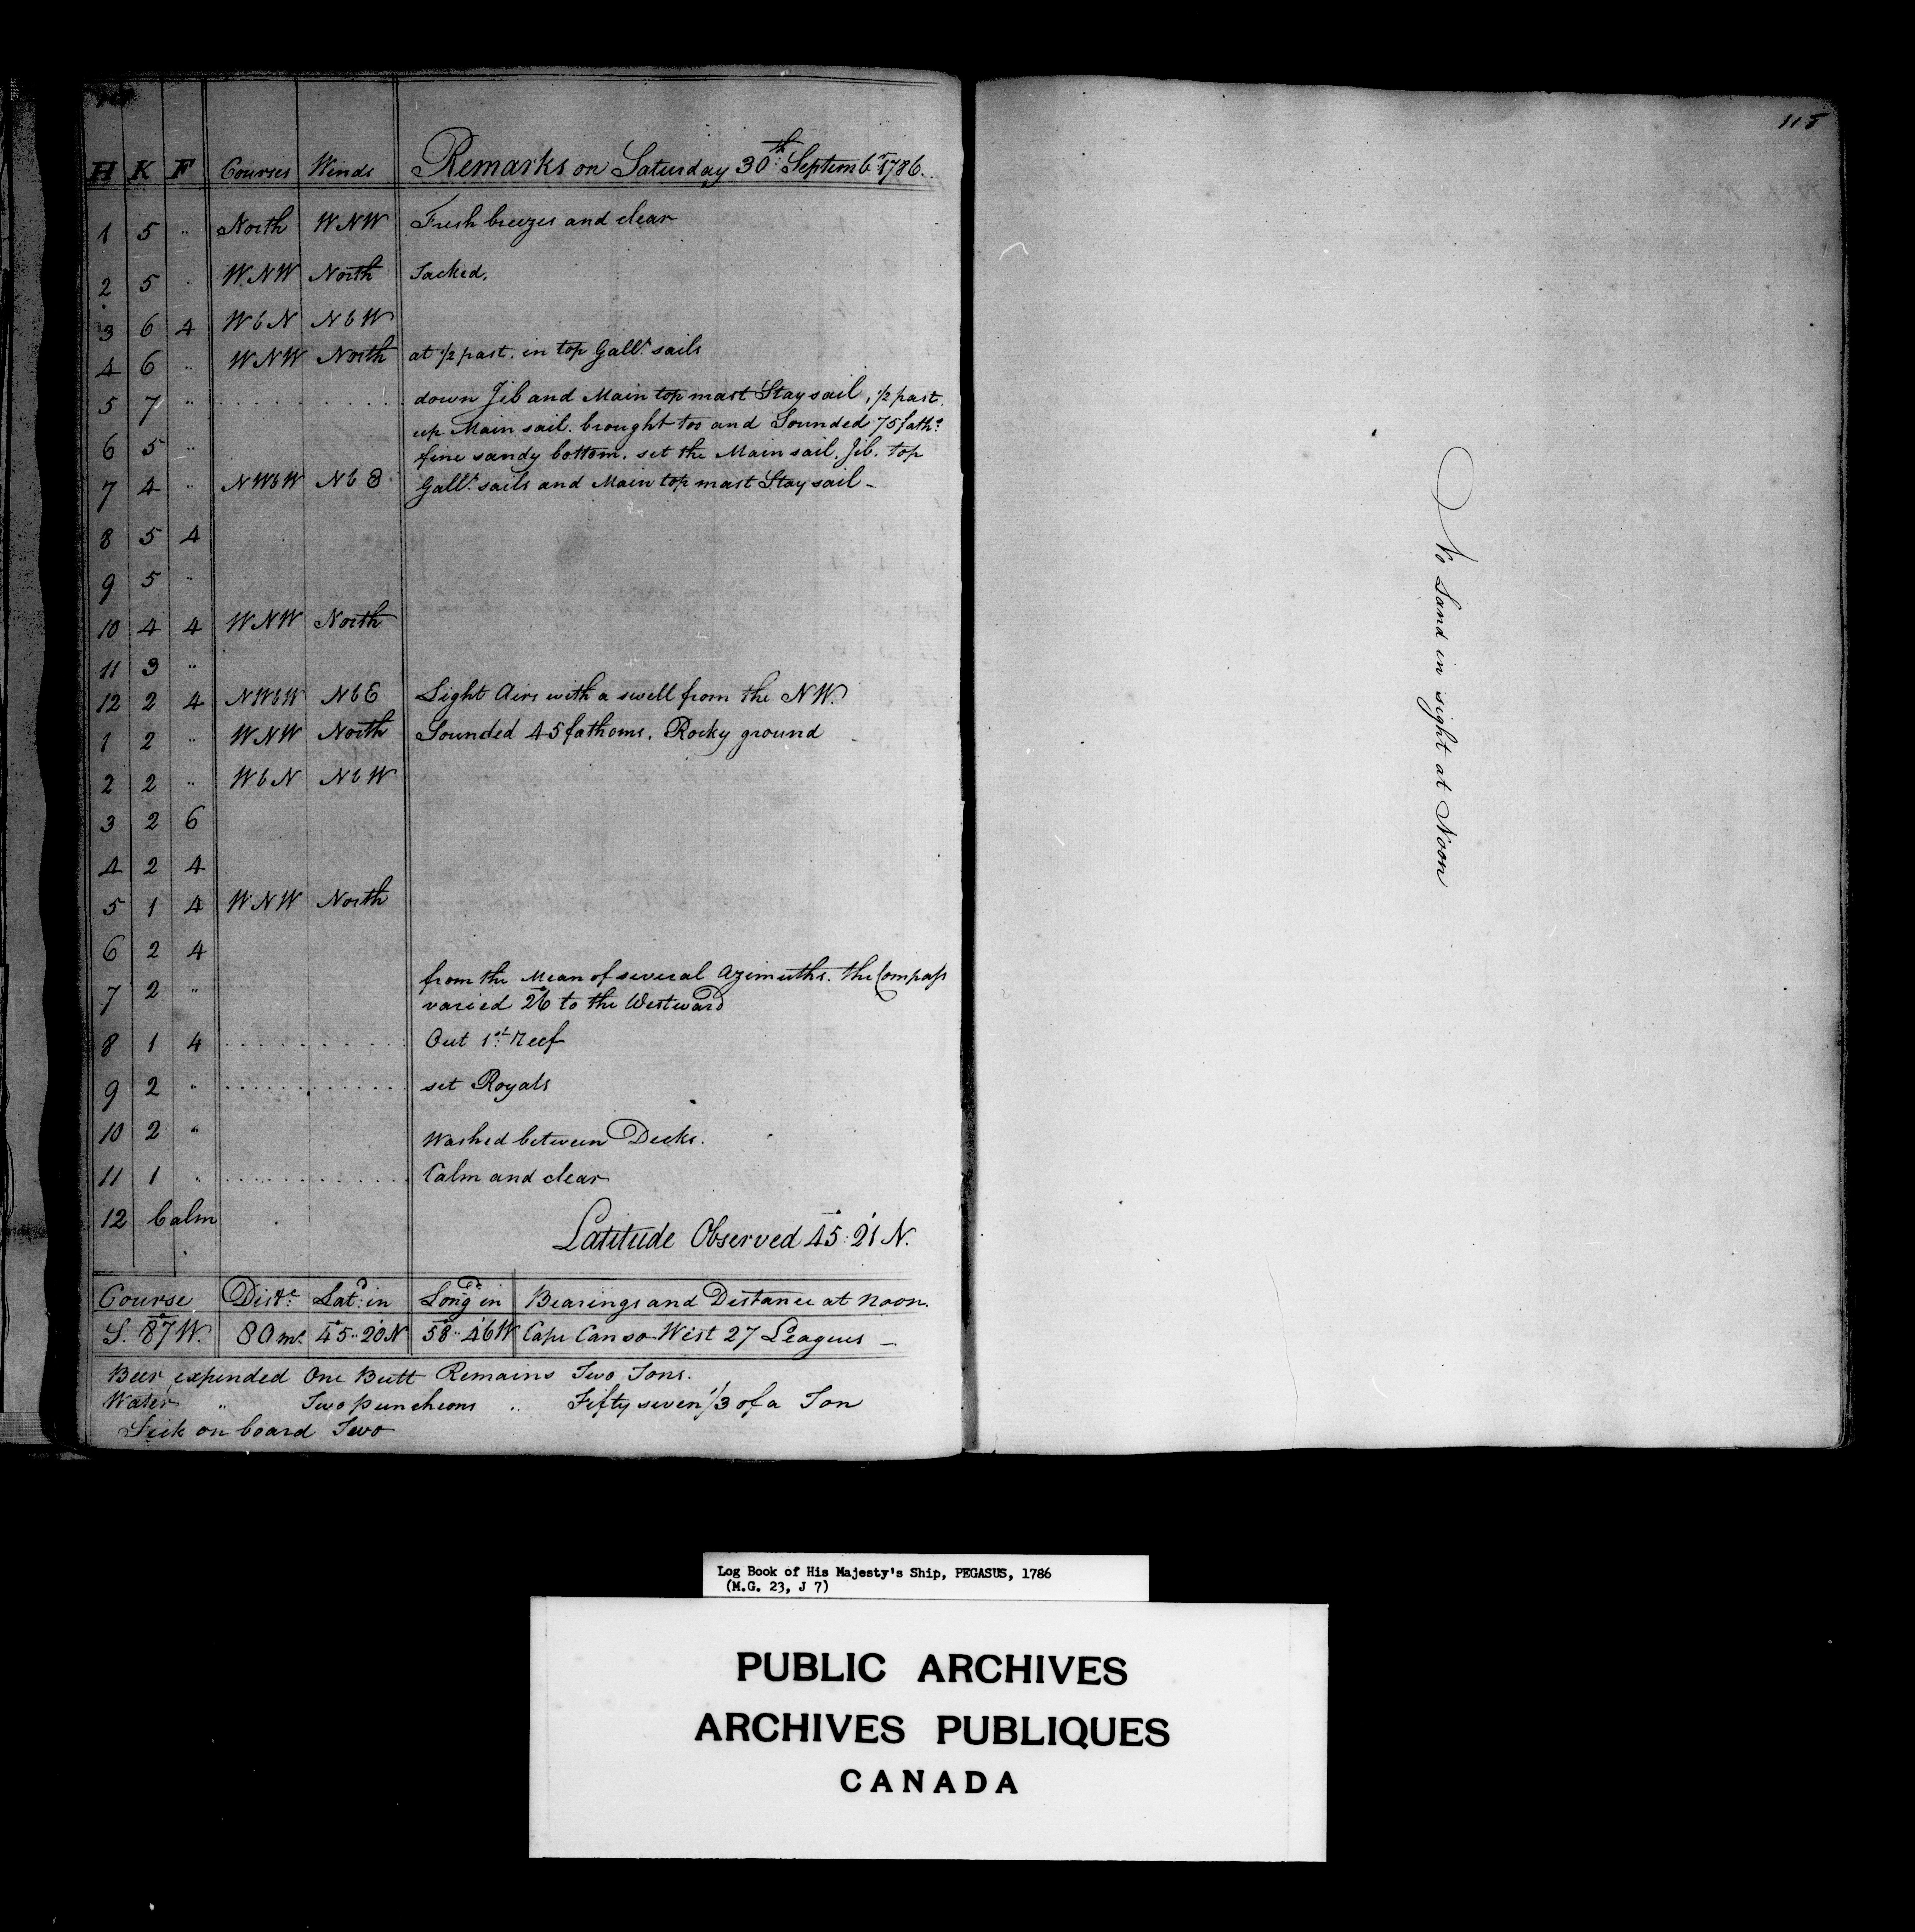 H K F Courses Winds Remarks on Saturday 30th Septembr 1786.
1 5 " North WNW Fresh breezes and clear
2 5 " WNW North Tacked.
3 6 4 WbN NbW
4 6 " WNW North at 1/2 past. in top Gallt sails
5 7 " . . . . . . . . . . down Jib and Main top mast Stay sail, 1/2 past.
up Main sail. brought too and Sounded 75 faths
6 5 " fine sandy bottom. set the Main sail. Jib. top
7 4 " NWbW NbE Gallt sails and Main top mast Stay sail -
8 5 4
9 5 "
10 4 4 WNW North
11 3 "
12 2 4 NWbW NbE Light Airs with a swell from the NW.
1 2 " WNW North Sounded 45 fathoms. Rocky ground
2 2 " WbN NbW
3 2 6
4 2 4
5 1 4 WNW North
6 2 4
from the Mean of several Azimuths. the Compass
7 2 " varied 26° to the Westward
8 1 4 . . . . . . . . . . Out 1st Reef
9 2 " . . . . . . . . . . set Royals
10 2 " Washed between Decks.
11 1 " . . . . . . . . . . Calm and clear
12 Calm
Latitude Observed 45°: 21' N.
Course Diste Latd in Longd in Bearings and Distance at Noon.
S. 87° W. 80 ms 45°.. 20' N 58°.. 46' W Cape Canso West 27 Leagues -
Beer expended One Butt Remains Two Tons.
Water " Two puncheons " Fifty seven 1/3 of a Ton
Sick on board Two
115
No Land in sight at Noon
Log Book of His Majesty's Ship, PEGASUS, 1786
(M.G. 23, J 7)
PUBLIC ARCHIVES
ARCHIVES PUBLIQUES
CANADA